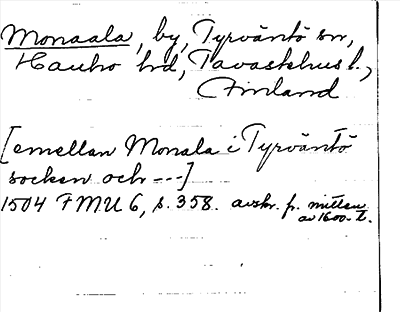 Monaala, by, Tyrväntö sn,
Hauho hd, Tavastehus l.,
Finland
[emellan Monala i Tyrväntö
socken och ---]
1504 FMU 6, s. 358. avskr. fr. mitten
av 1600-t.